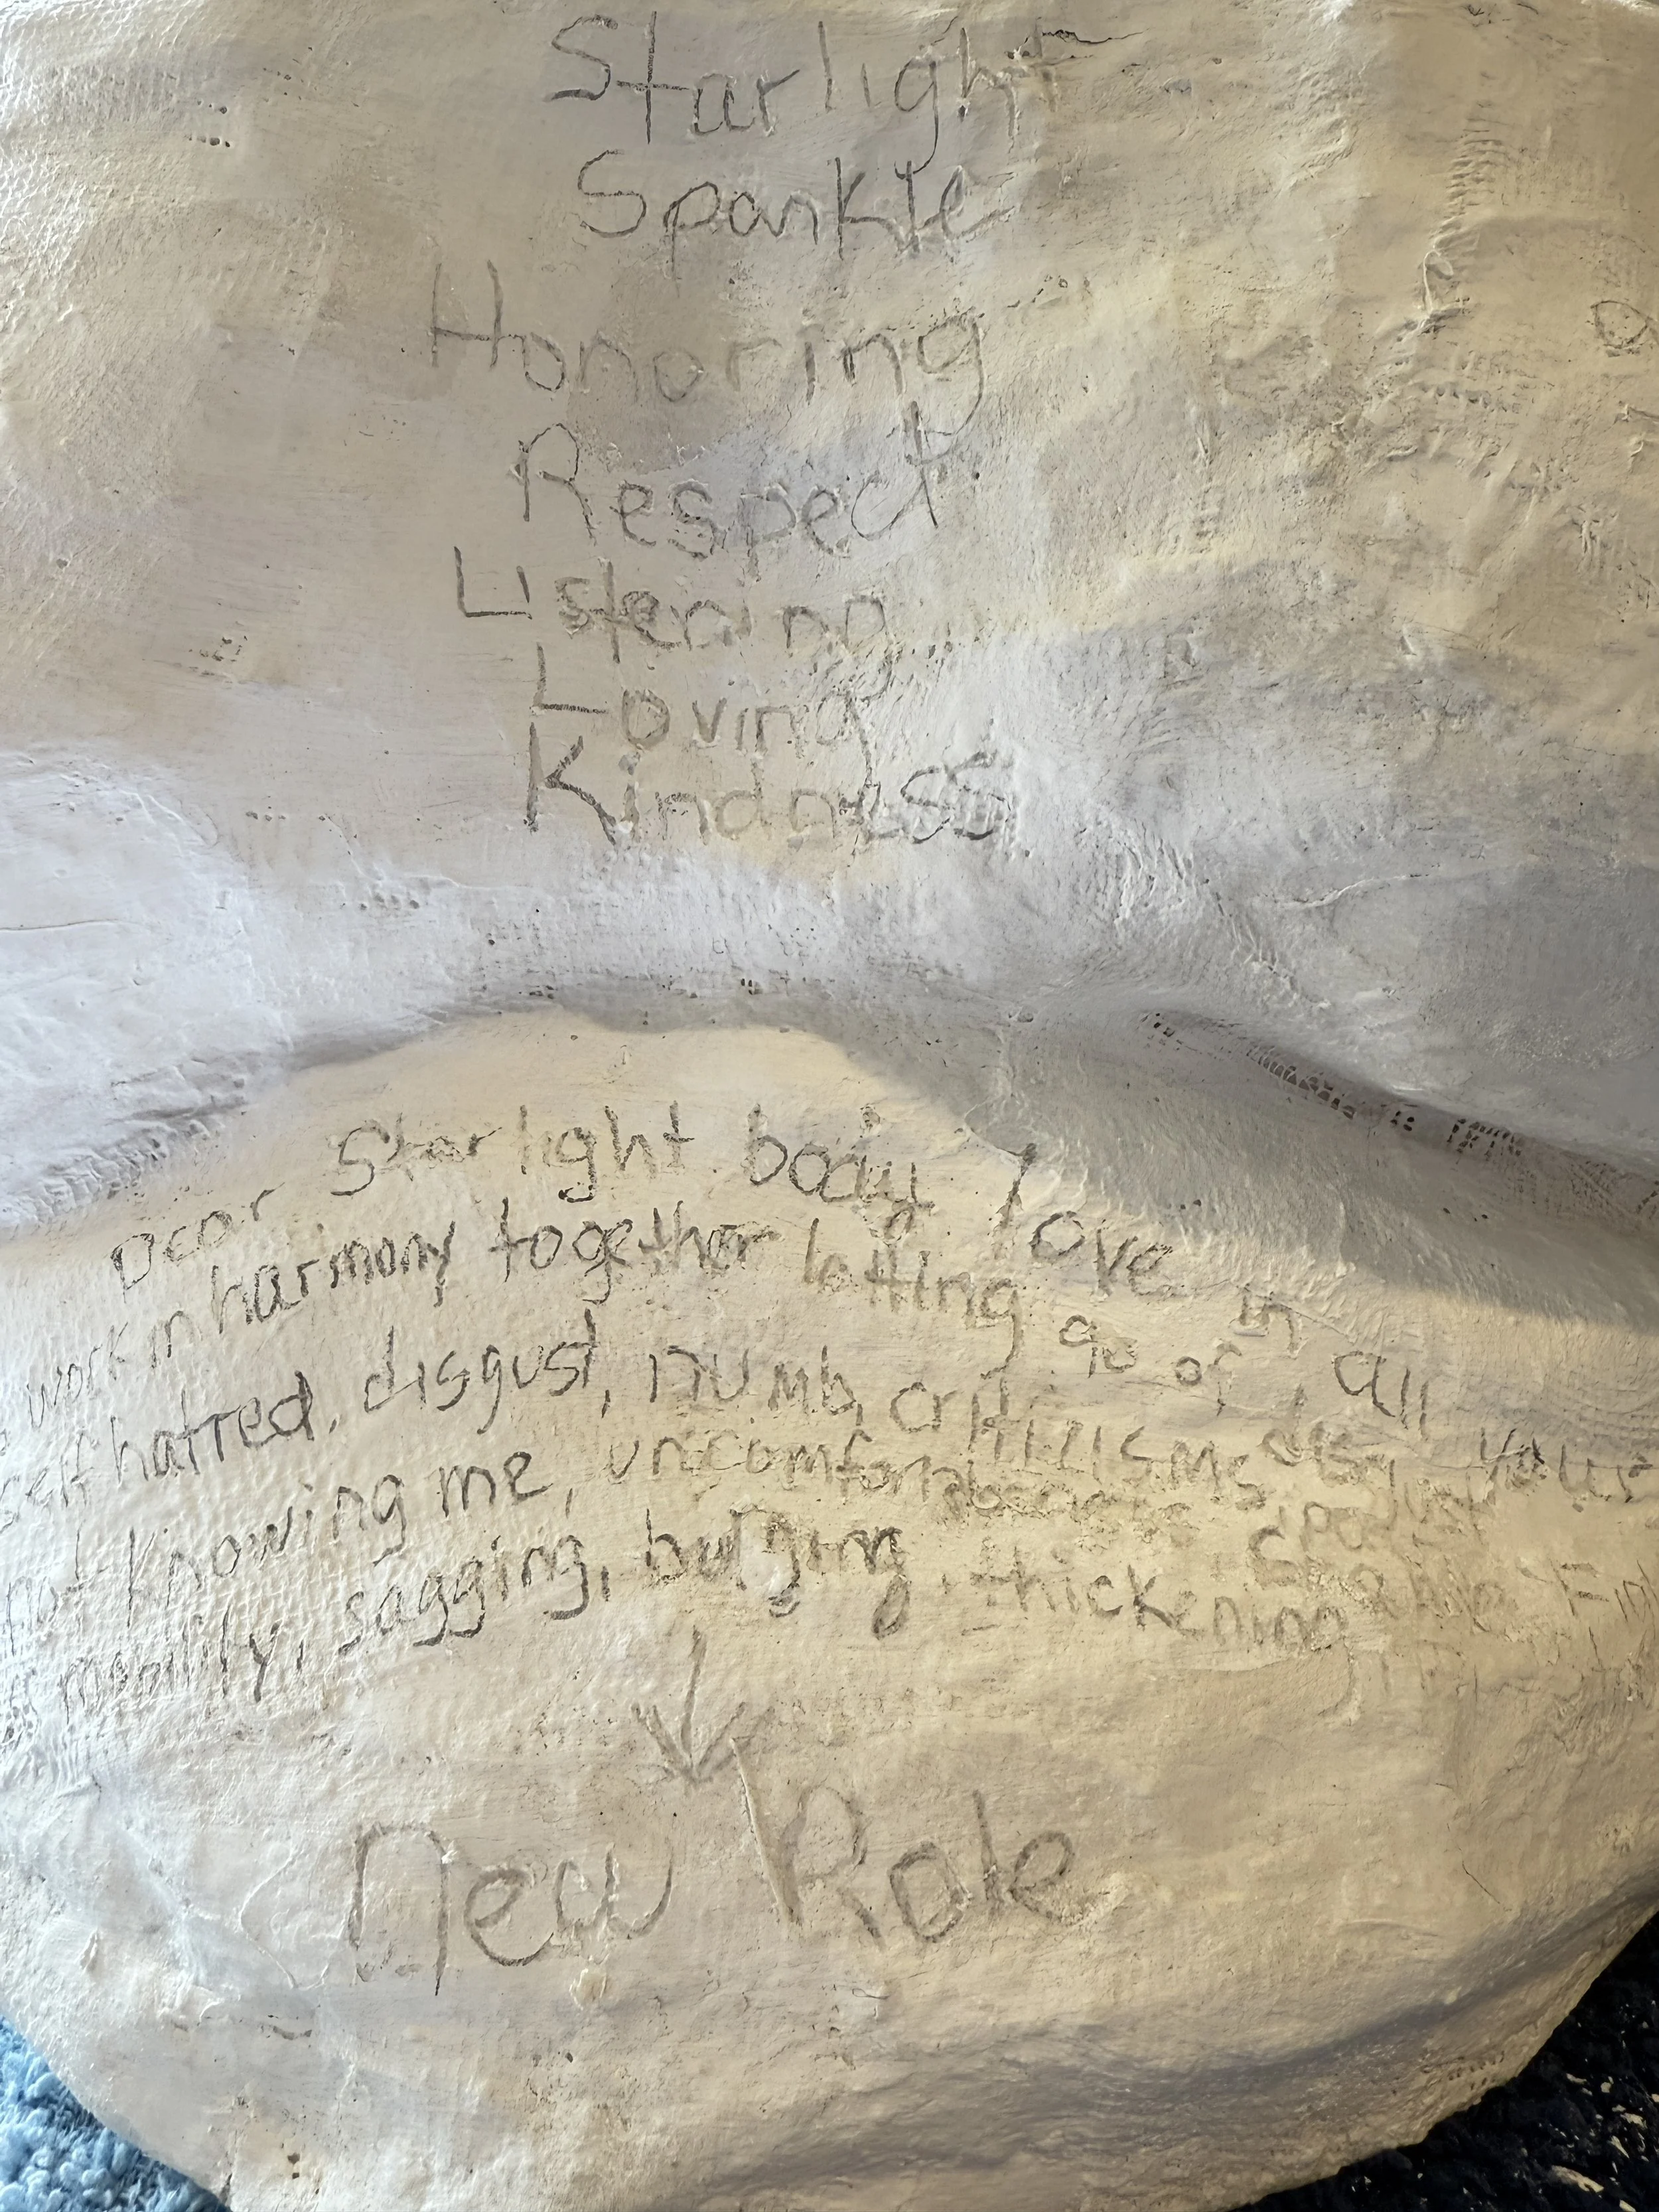 Starlight
Sparkle
Honoring
Respect
Listening
Loving
Kindness
Dear Starlight body I love in all your
work in harmony together letting go of
self hatred, disgust, numb, critizisms
not knowing me, uncomfortable
mobility, sagging, bulging, thickening
New Role